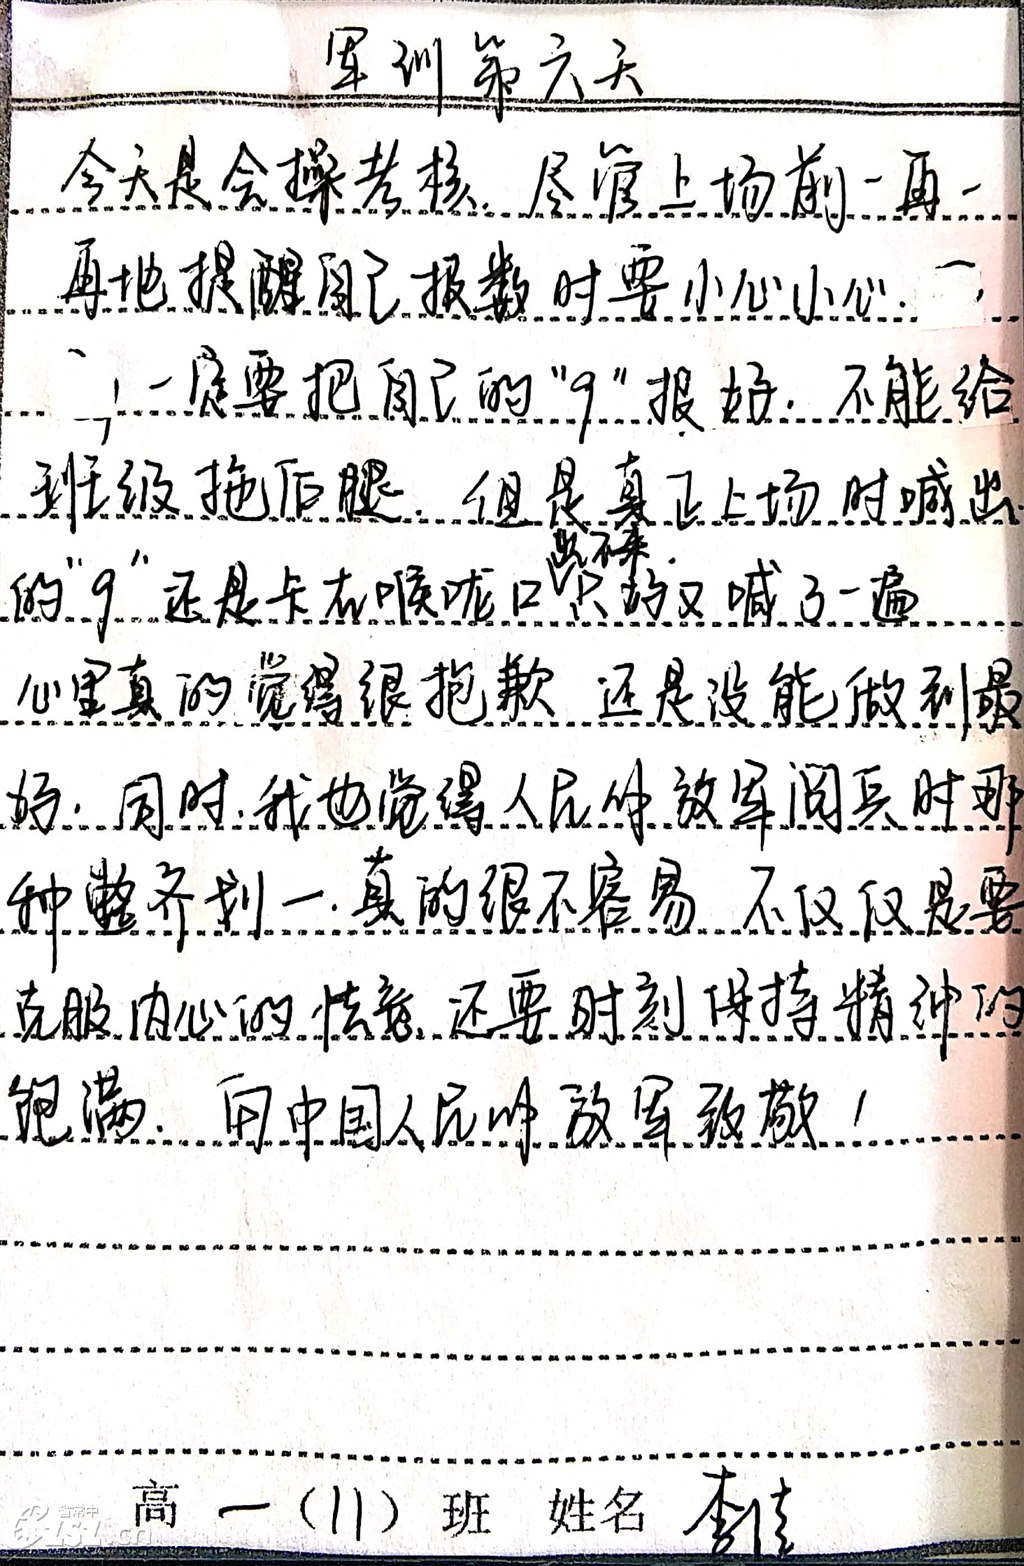 军训第六天
今天是会操考核.尽管上场前一再一
再地提醒自己报数时要小心小心.
一定要把自己的"9"报好.不能给
班级拖后腿.但是真正上场时喊出
出不来.
的"9"还是卡在喉咙口 只好又喊了一遍
心里真的觉得很抱歉 还是没能做到最
好.同时.我也觉得人民解放军阅兵时那
种整齐划一.真的很不容易 不仅仅是要
克服内心的怯意.还要时刻保持精神的
饱满.向中国人民解放军致敬!
高一(11)班 姓名 李佳